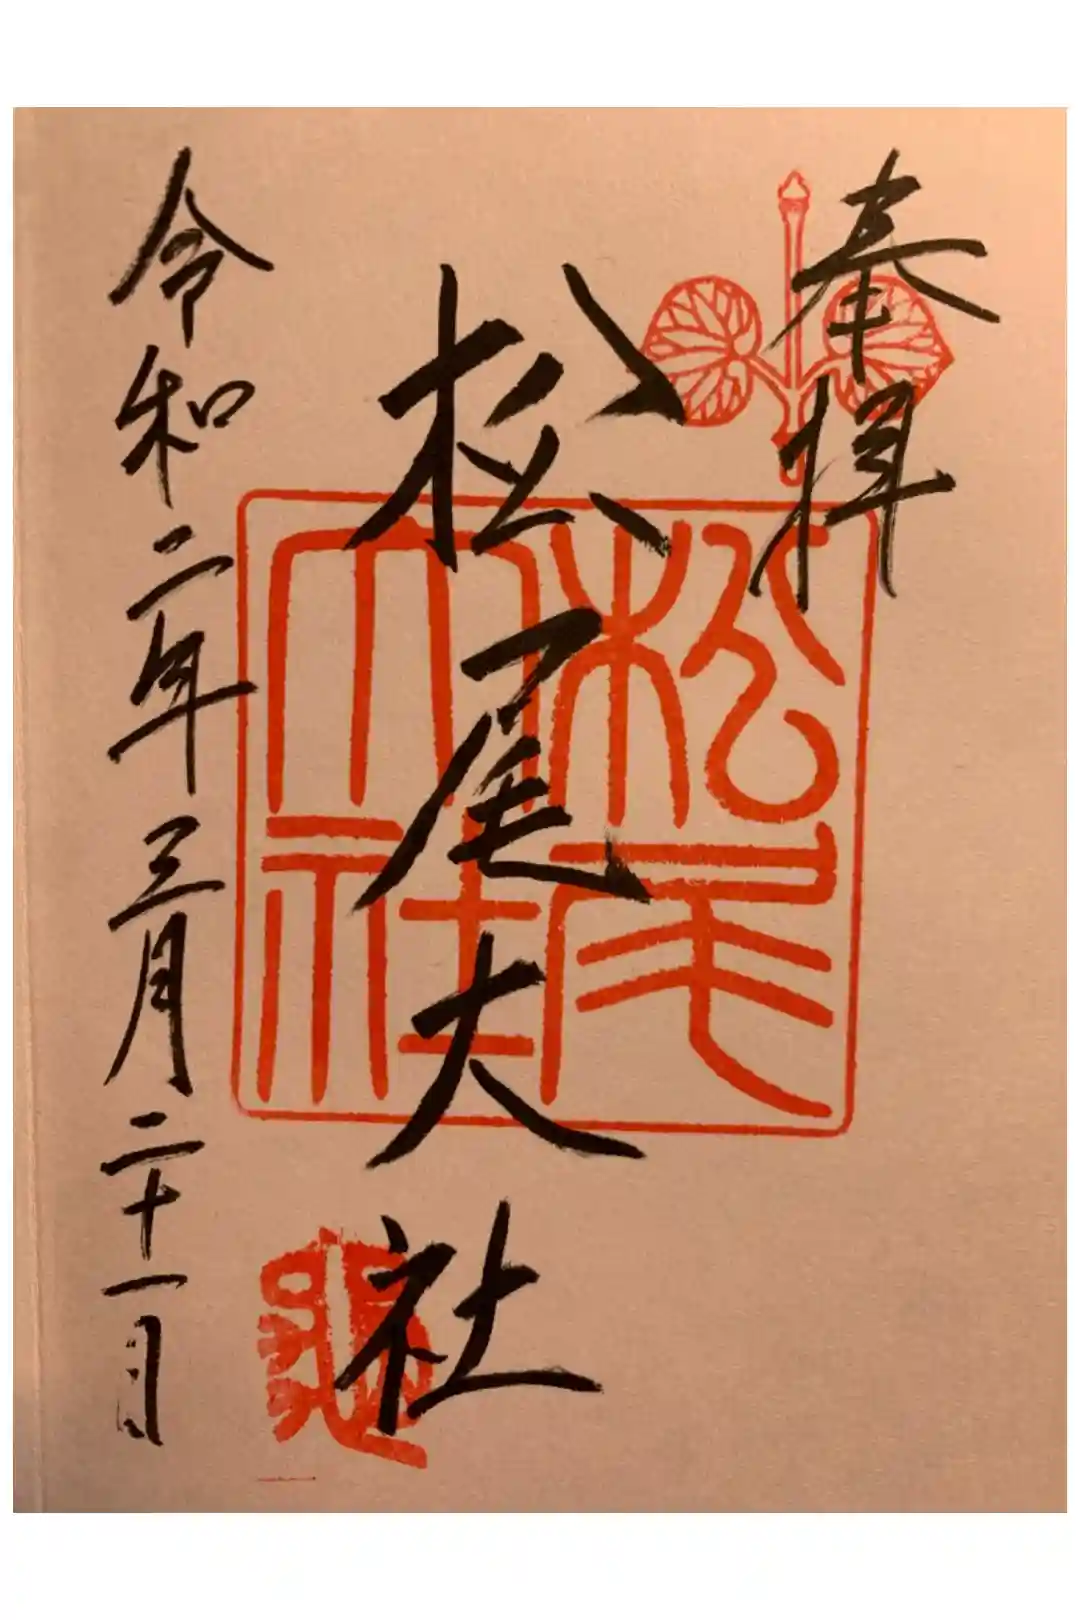 奉拝
松尾大社
松尾大社
令和二年三月二十一日